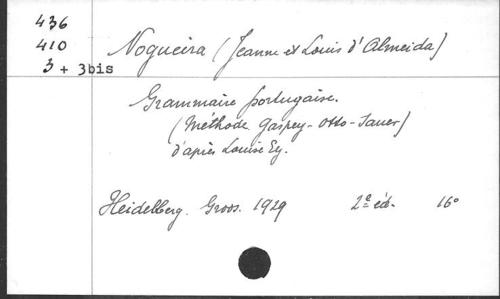 436
410
3 + 3bis
Nogueira (Jeanne et Louis d'Almeida)
Grammaire portugaise.
(Méthode Gaspey-Otto-Sauer)
d'après Louise Ey.
Heidelberg. Groos. 1929 2e éd. 16°